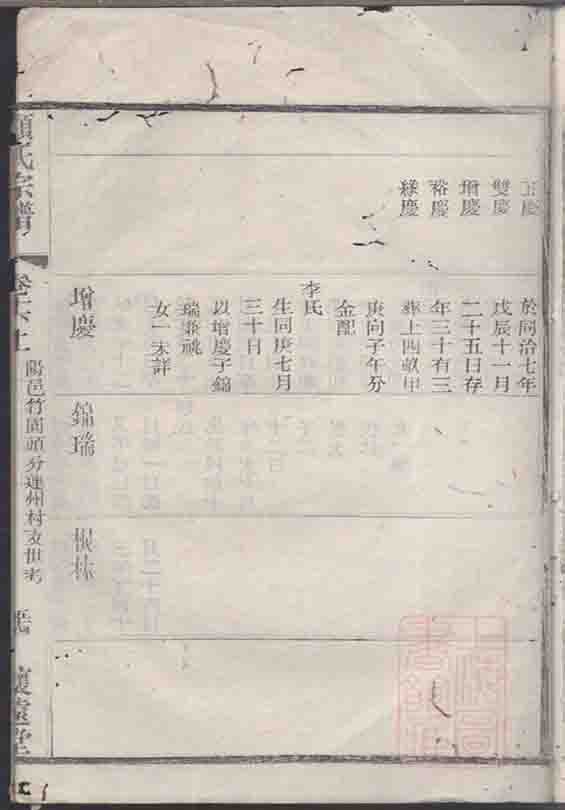 正慶
雙慶
增慶
裕慶
綠慶
於同治七年
戊辰十一月
二十五日存
年三十有三
葬上四畝甲
庚向子午分
金配
李氏
生同庚七月
三十日
以增慶子錦
瑞兼祧
女一未詳
增慶
錦瑞
根林
顧氏宗譜
卷六上
陽邑竹園頭分連州村支世表